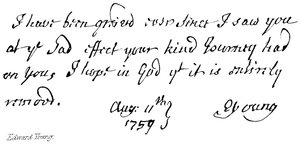 I have been grieved ever since I saw you
at ye sad effect your kind Journey had
on You, I hope in God yt it is entirely
remood.
Aug: 11th
1759
EYoung
Edward Young.